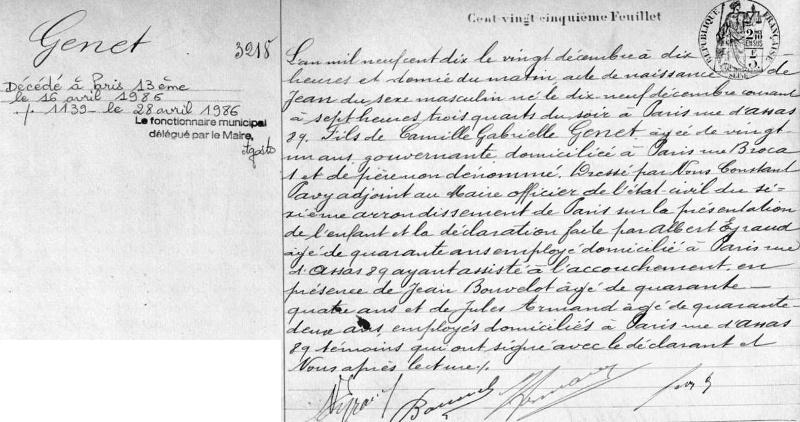 Genet
3218
Décédé à Paris 13ème
le 16 avril 1986
n/ 1139 - le 28 avril 1986
Le fonctionnaire municipal
délégué par le Maire,
Cent vingt cinquième Feuillet
RÉPUBLIQUE FRANÇAISE
L'an mil neuf cent dix le vingt décembre à dix
heures et demie du matin, acte de naissance de
Jean du sexe masculin né le dix neuf décembre courant
à sept heures trois quarts du soir à Paris rue d'assas
89. Fils de Camille Gabrielle Genet âgée de vingt
un ans, gouvernante, domiciliée à Paris rue Broca
1 et de père non dénommé. Dressé par Nous Constant
Pavy adjoint au Maire officier de l'état civil du si-
xième arrondissement de Paris sur la présentation
de l'enfant et la déclaration faite par Albert Eyraud
âgé de quarante ans employé domicilié à Paris rue
d'Assas 89 ayant assisté à l'accouchement, en
présence de Jean Bouvelot âgé de quarante-
quatre ans et de Jules Armand âgé de quarante
deux ans, employés domiciliés à Paris rue d'assas
89 témoins qui ont signé avec le déclarant et
Nous après lecture./.